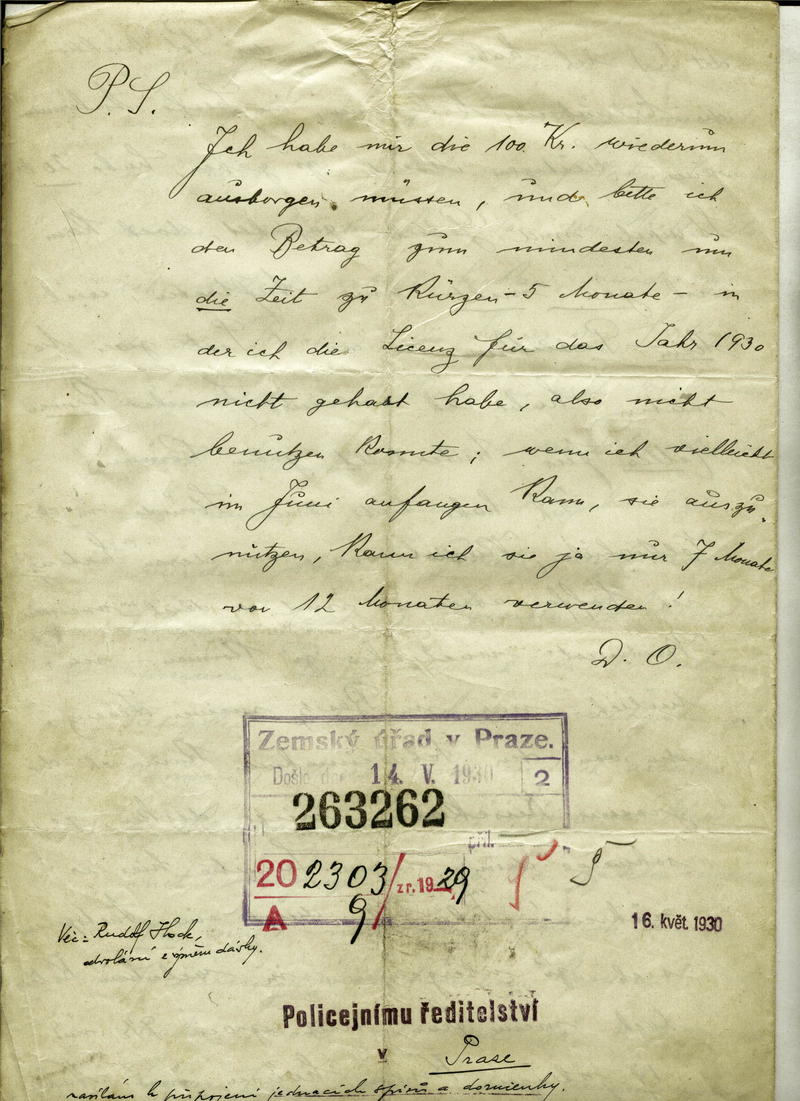 P.S.
Ich habe mir die 100 Kr. wiederum
ausborgen müssen, und bitte ich
den Betrag zum mindesten um
die Zeit zu kürzen – 5 Monate – in
der ich die Licenz für das Jahr 1930
nicht gehabt habe, also nicht
benützen konnte; wenn ich vielleicht
im Juni anfangen kann, sie auszu-
nützen, kann ich sie ja nur 7 Monate
von 12 Monaten verwenden!
D. O.
Zemský úřad v Praze.
Došlo dne 14. V. 1930 2
263262
příl.
20 2303/ z r. 1929
A 9
5
16. květ. 1930
Věc: Rudolf
odvolání z výměru dávky.
Policejnímu ředitelství
v Praze
zasílám k připojení jednacích spisů a domienky.